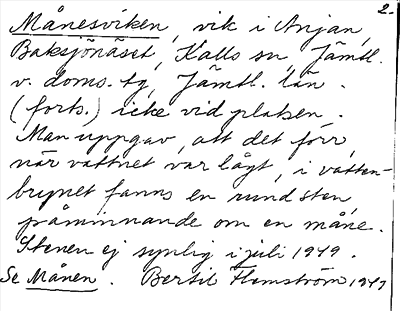 2.
Månesviken, vik i Anjan,
Baksjönäset, Kalls sn, Jämtl.
v. doms. tg, Jämtl. län.
(forts.) icke vid platsen.
Man uppgav, att det förr,
när vattnet var lågt, i vatten-
brynet fanns en rund sten,
påminnande om en måne.
Stenen ej synlig i juli 1949.
Se Månen. Bertil Flemström, 1949